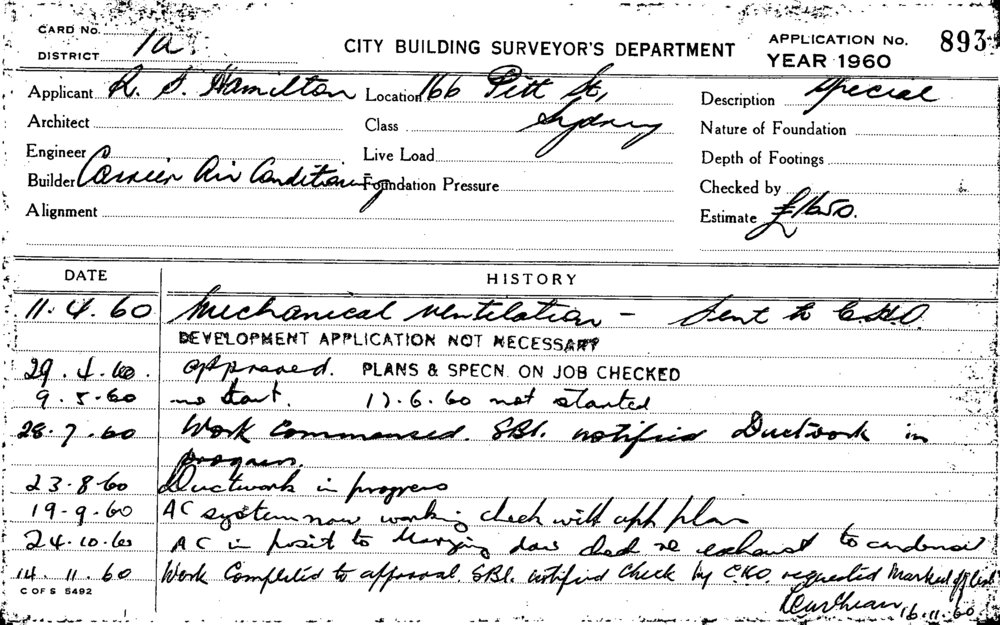 CARD No.
DISTRICT 1a
CITY BUILDING SURVEYOR'S DEPARTMENT
APPLICATION No. 893
YEAR 1960
Applicant R. S. Hamilton Location 166 Pitt St, Description Special
Architect Class Sydney Nature of Foundation
Engineer Live Load Depth of Footings
Builder Carrier Air Conditioning Foundation Pressure Checked by
Alignment Estimate £1650.
DATE HISTORY
11.4.60 Mechanical ventilation – Sent to C.H.O.
DEVELOPMENT APPLICATION NOT NECESSARY
29.4.60. approved. PLANS & SPECN. ON JOB CHECKED
9.5.60 no start. 17.6.60 not started
28.7.60 Work Commensed. SBI. notified Ductwork in
progress.
23.8.60 Ductwork in progress
19.9.60 AC system now working check with plan
24.10.60 AC in posit to check re exhaust to condenser
14.11.60 Work Completed to approval SBI. notified Check by C.H.O. requested Marked off
C OF S 5492
16.11.60